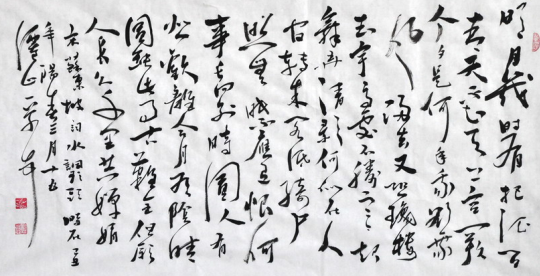 明月几时有把酒问
青天不知天上宫阙
今夕是何年我欲乘
风归去又恐琼楼
玉宇高处不胜寒起
舞弄清影何似在人
间转朱阁低绮户
照无眠应有恨何
事长向别时圆人有
悲欢离合月有阴晴
圆缺此事古难全但愿
人长久千里共婵娟
宋苏东坡词水调歌头时在
年阳春三月十五